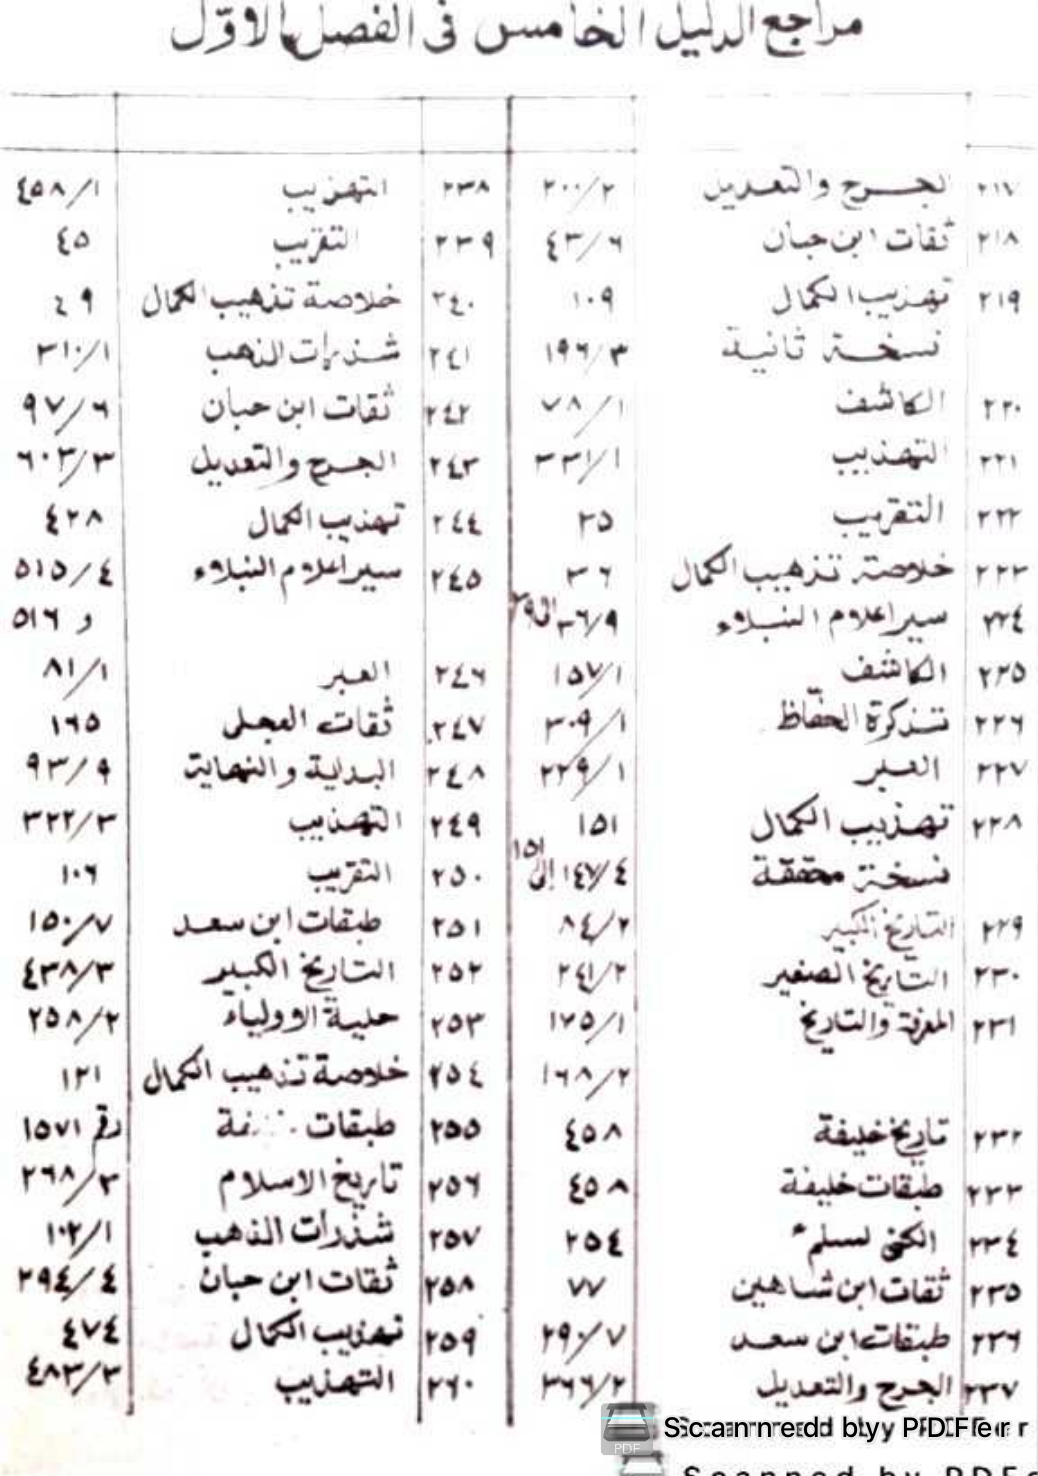 مراجع الدليل الخامس فى الفصل الاوّل
٢١٧ الجرح والتعديل ٢٠٠/٢
٢١٨ ثقات ابن حبان ٤٣/٦
٢١٩ تهذيب الكمال ١٠٩
نسخة ثانية ١٩٦/٣
٢٢٠ الكاشف ٧٨/١
٢٢١ التهذيب ٣٣١/١
٢٢٢ التقريب ٣٥
٢٢٣ خلاصة تذهيب الكمال ٣٦
٢٢٤ سير اعلام النبلاء ٣٦/٩ الى ٣٩
٢٢٥ الكاشف ١٥٧/١
٢٢٦ تذكرة الحفّاظ ٣٠٩/١
٢٢٧ العبر ٢٢٩/١
٢٢٨ تهذيب الكمال ١٥١
نسخة محققة ١٤٧/٤ إلى ١٥١
٢٢٩ التاريخ الكبير ٨٤/٢
٢٣٠ التاريخ الصغير ٢٤١/٢
٢٣١ المعرفة والتاريخ ١٧٥/١
١٦٨/٢
٢٣٢ تاريخ خليفة ٤٥٨
٢٣٣ طبقات خليفة ٤٥٨
٢٣٤ الكنى لمسلم ٢٥٤
٢٣٥ ثقات ابن شاهين ٧٧
٢٣٦ طبقات ابن سعد ٢٩٠/٧
٢٣٧ الجرح والتعديل ٣٦٦/٢
٢٣٨ التهذيب ٤٥٨/١
٢٣٩ التقريب ٤٥
٢٤٠ خلاصة تذهيب الكمال ٤٩
٢٤١ شذرات الذهب ٣١٠/١
٢٤٢ ثقات ابن حبان ٩٧/٦
٢٤٣ الجرح والتعديل ٦٠٣/٣
٢٤٤ تهذيب الكمال ٤٢٨
٢٤٥ سير اعلام النبلاء ٥١٥/٤
و ٥١٦
٢٤٦ العبر ٨١/١
٢٤٧ ثقات العجلى ١٦٥
٢٤٨ البداية والنهاية ٩٣/٩
٢٤٩ التهذيب ٣٢٢/٣
٢٥٠ التقريب ١٠٦
٢٥١ طبقات ابن سعد ١٥٠/٧
٢٥٢ التاريخ الكبير ٤٣٨/٣
٢٥٣ حلية الاولياء ٢٥٨/٢
٢٥٤ خلاصة تذهيب الكمال ١٢١
٢٥٥ طبقات رقم ١٥٧١
٢٥٦ تاريخ الاسلام ٢٦٨/٣
٢٥٧ شذرات الذهب ١٠٢/١
٢٥٨ ثقات ابن حبان ٢٩٤/٤
٢٥٩ تهذيب الكمال ٤٧٤
٢٦٠ التهذيب ٤٨٣/٣
PDF